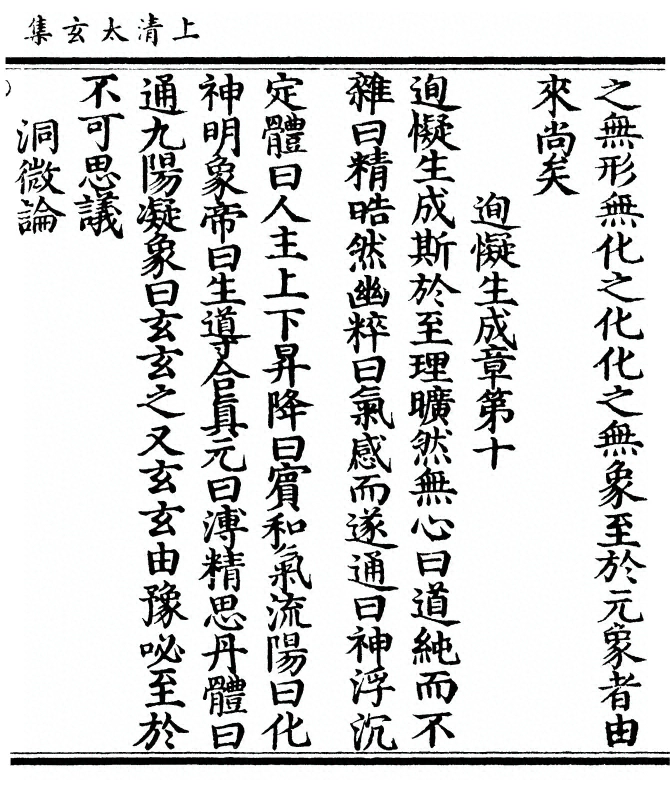 上清太玄集
之無形無化之化化之無象至於元象者由
來尚矣
逈凝生成章第十
逈凝生成斯於至理曠然無心曰道純而不
雜曰精晧然幽粹曰氣感而遂通曰神浮沉
定體曰人主上下昇降曰賓和氣流陽曰化
神明象帝曰生導合真元曰溥精思丹體曰
通九陽凝象曰玄玄之又玄玄由豫咇至於
不可思議
洞微論